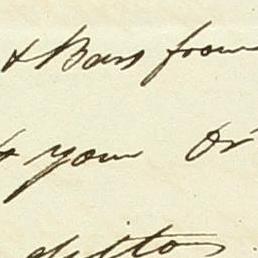 & Bars from
to your Or
ditto